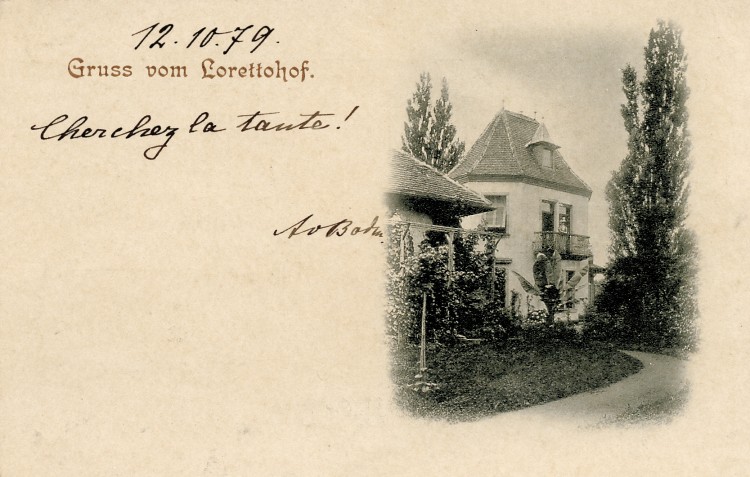 12.10.79.
Gruss vom Lorettohof.
Cherchez la tante!